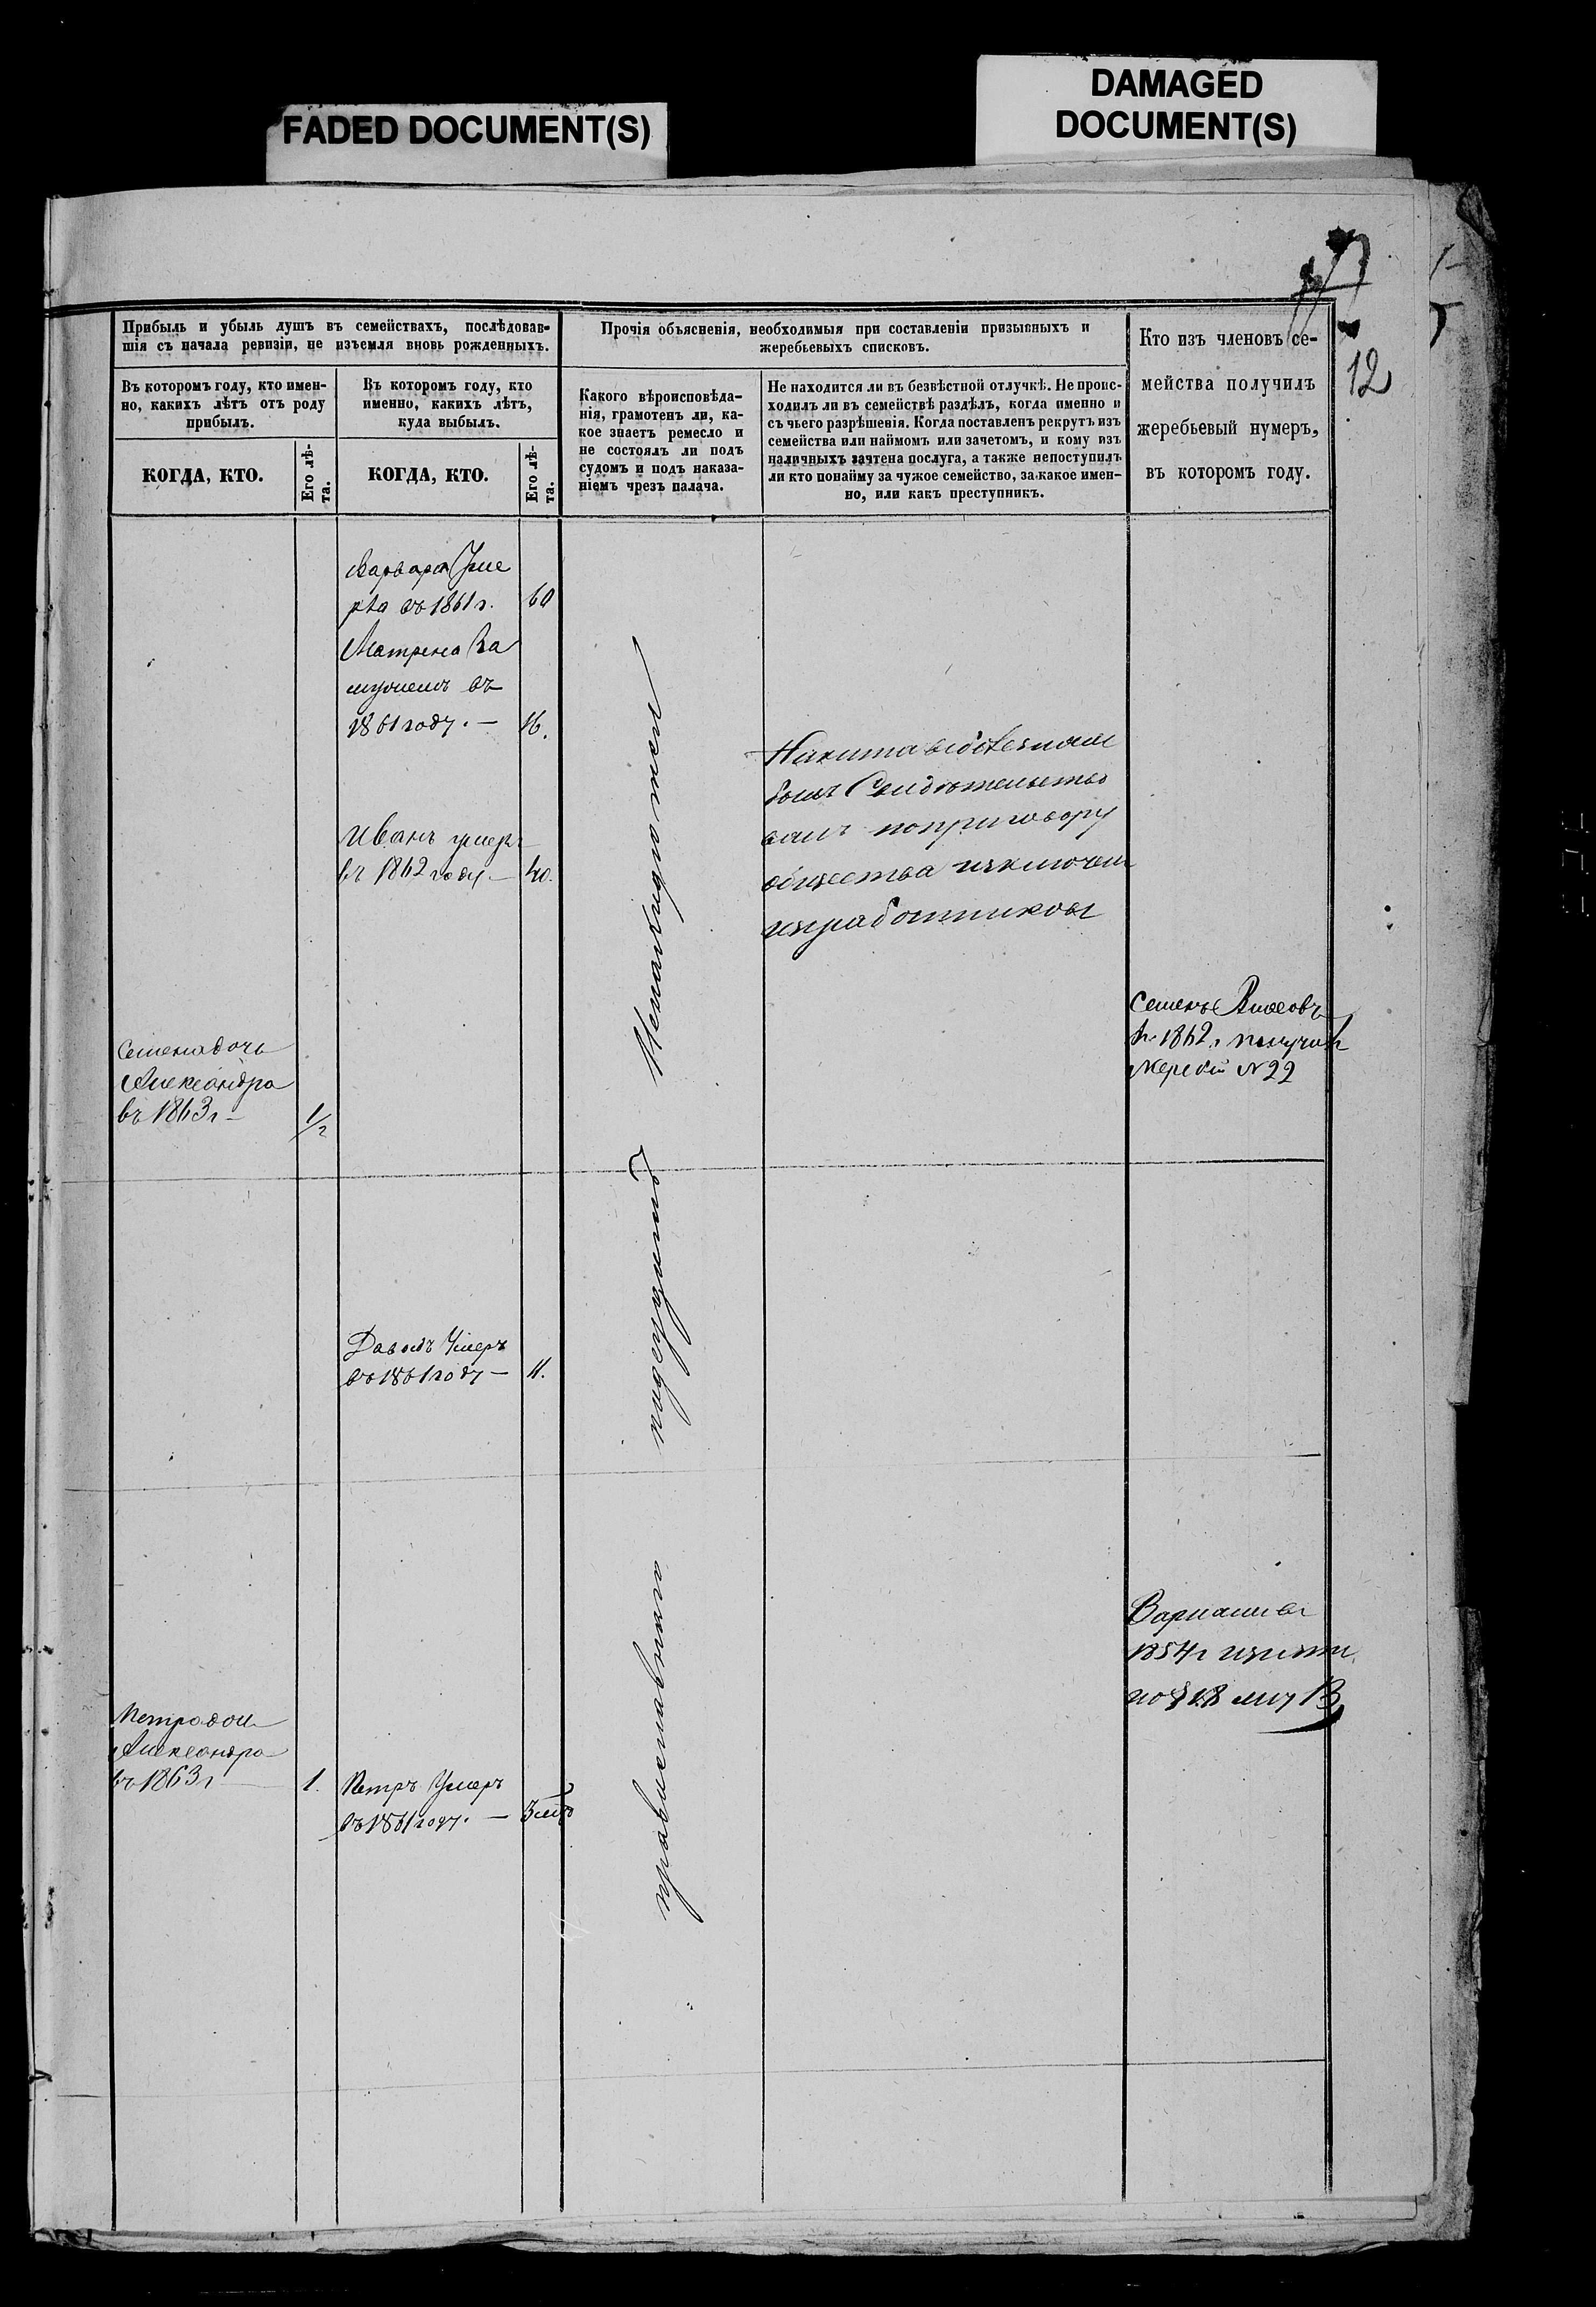 FADED DOCUMENT(S)
DAMAGED
DOCUMENT(S)
12
Прибыль и убыль душъ въ семействахъ, послѣдовав-
шія съ начала ревизіи, не изъемля вновь рожденныхъ.
Въ которомъ году, кто имен-
но, какихъ лѣтъ отъ роду
прибылъ.
Въ которомъ году, кто
именно, какихъ лѣтъ,
куда выбылъ.
КОГДА, КТО.
Его лѣ-
та.
КОГДА, КТО.
Его лѣ-
та.
Прочія объясненія, необходимыя при составленіи призывныхъ и
жеребьевыхъ списковъ.
Какого вѣроисповѣда-
нія, грамотенъ ли, ка-
кое знаетъ ремесло и
не состоялъ ли подъ
судомъ и подъ наказа-
ніемъ чрезъ палача.
Не находится ли въ безвѣстной отлучкѣ. Не проис-
ходилъ ли въ семействѣ раздѣлъ, когда именно и
съ чьего разрѣшенія. Когда поставленъ рекрутъ изъ
семейства или наймомъ или зачетомъ, и кому изъ
наличныхъ зачтена послуга, а также непоступилъ
ли кто понайму за чужое семейство, за какое имен-
но, или какъ преступникъ.
Кто изъ членовъ се-
мейства получилъ
жеребьевый нумеръ,
въ которомъ году.
Варвара Уме
рла въ 1861 г. 60
Матрена За
мужемъ въ
1861 году. — 16.
Иванъ умеръ
въ 1862 году — 40.
Семена дочь
Александра
въ 1863 г — 1/2
Давыдъ Умеръ
въ 1861 году — 11.
Александра
въ 1863 г — 1.
Петръ Умеръ
въ 1861 году. —
православнаго
Никита
Свидѣтельство
поприговору
общества
изработниковъ
Семенъ
1862 г получилъ
жеребій № 22
1854 г